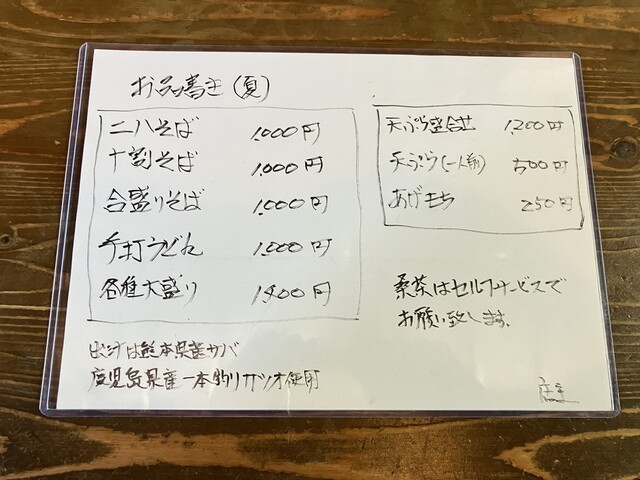 お品書き(夏)
二八そば 1,000円
十割そば 1,000円
合盛りそば 1,000円
手打うどん 1,000円
各種大盛り 1,400円
出汁は熊本県産サバ
鹿児島県産一本釣りカツオ使用
天ぷら盛合せ 1,200円
天ぷら(一人前) 500円
あげもち 250円
桑茶はセルフサービスで
お願い致します。